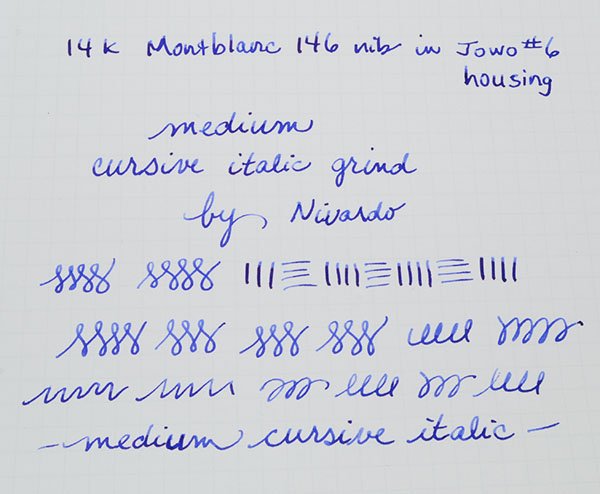 14k Montblanc 146 nib in Jowo #6
housing
medium
cursive italic grind
by Nivardo
- medium cursive italic -